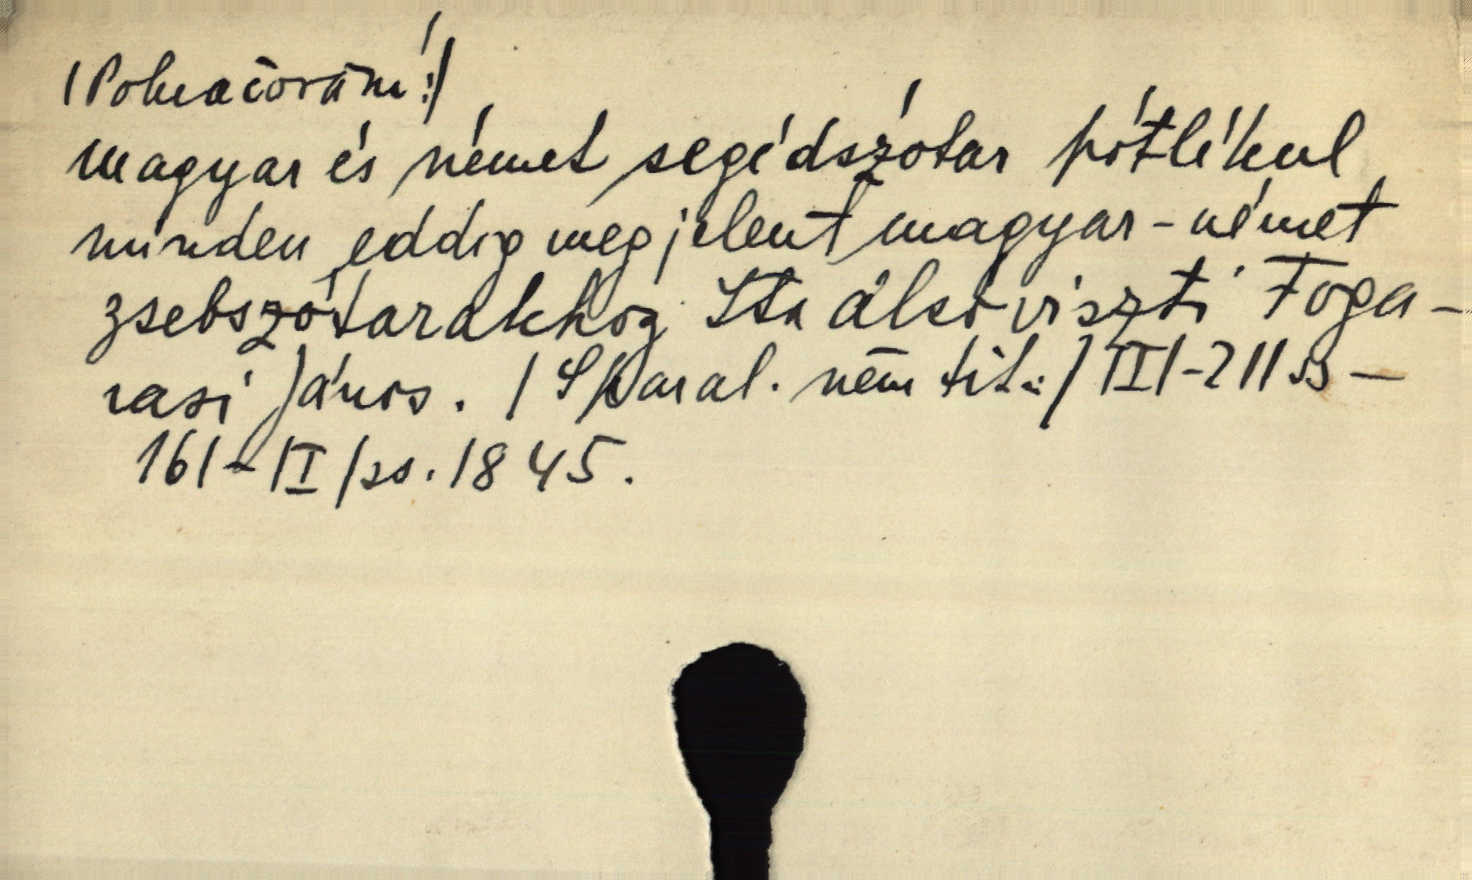 /Pokračování:/
magyar és német segédszótar pótlékul
minden eddig megjelent magyar-német
zsebszótarakhoz Irta álsóviszti Foga-
rasi János. /S paral. něm tit.:/ III-211 ss —
161-II/ss. 1845.